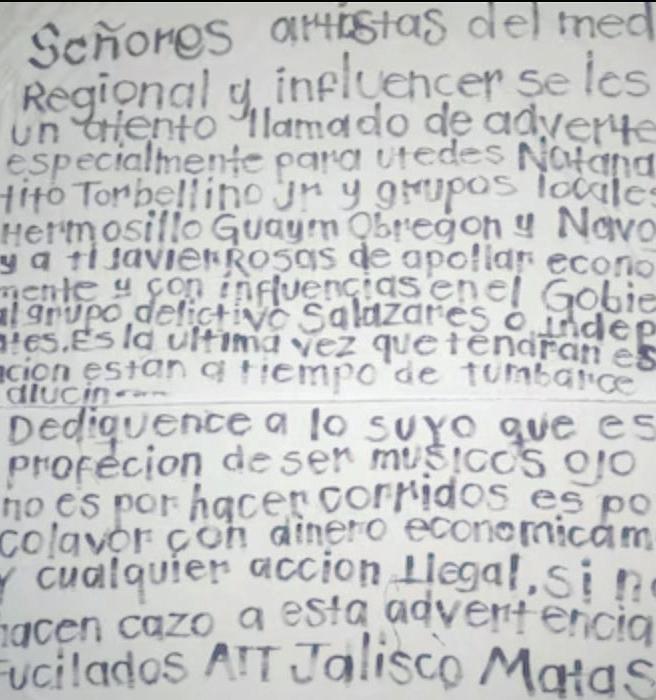 Señores artistas del med
Regional y influencer se les
un atento llamado de adverte
especialmente para utedes Natana
tito Torbellino Jr y grupos locales
Hermosillo Guaym Obregon y Navo
y a ti Javier Rosas de apollar econo
mente y con influencias en el Gobie
al grupo delictivo Salazares o Indep
tes. Es la ultima vez que tendran es
cion estan a tiempo de tumbarce
alucin---
Dediquence a lo suyo que es
profecion de ser musicos ojo
no es por hacer corridos es po
colavor con dinero economicam
y cualquier accion Ilegal, si n
hacen cazo a esta advertencia
fucilados ATT Jalisco Matas